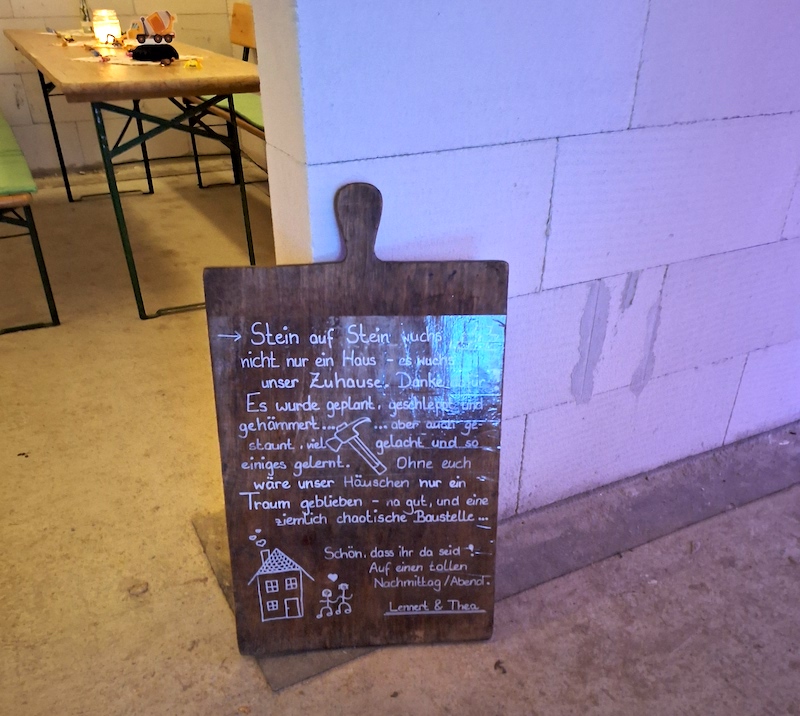 → Stein auf Stein wuchs
nicht nur ein Haus - es wuchs
unser Zuhause. Danke dafür.
Es wurde geplant, geschleppt und
gehämmert... ...aber auch ge-
staunt, viel gelacht und so
einiges gelernt. Ohne euch
wäre unser Häuschen nur ein
Traum geblieben - na gut, und eine
ziemlich chaotische Baustelle...
Schön, dass ihr da seid
Auf einen tollen
Nachmittag/Abend.
Lennert & Thea